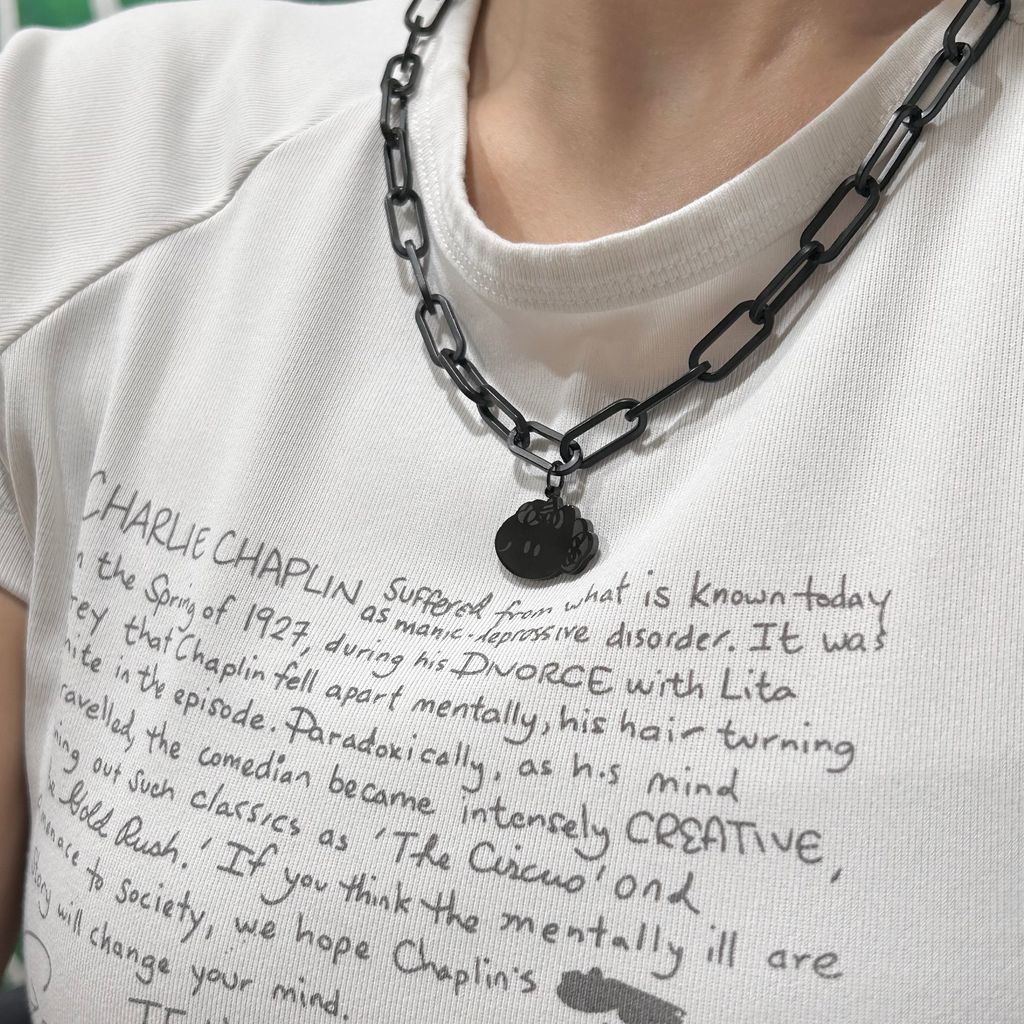 CHARLIE CHAPLIN suffered from what is known today
as manic-depressive disorder. It was
the Spring of 1927, during his DIVORCE with Lita
rey that Chaplin fell apart mentally, his hair turning
hite in the episode. Paradoxically, as his mind
ravelled, the comedian became intensely CREATIVE,
ning out such classics as 'The Circus' and
Gold Rush.' If you think the mentally ill are
menace to society, we hope Chaplin's
story will change your mind.